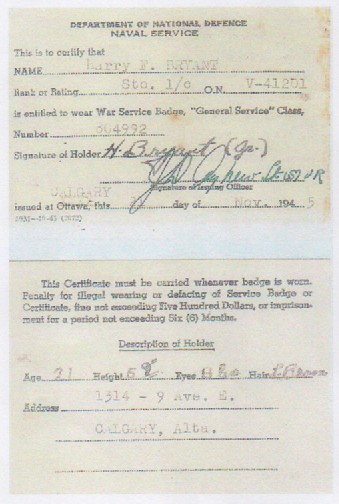 DEPARTMENT OF NATIONAL DEFENCE
NAVAL SERVICE
This is to certify that
NAME Harry F. BRYANT
Rank or Rating Sto. 1/c O.N. V-41201
is entitled to wear War Service Badge, "General Service" Class,
Number 804992
Signature of Holder H Bryant (Jr.)
Signature of Issuing Officer
CALGARY
issued at Ottawa, this day of Nov. 1945
This Certificate must be carried whenever badge is worn.
Penalty for illegal wearing or defacing of Service Badge or
Certificate, fine not exceeding Five Hundred Dollars, or imprison-
ment for a period not exceeding Six (6) Months.
Description of Holder
Age 21 Height 5 Eyes Blue Hair L. Brown
1314 - 9 Ave. E.
Address
CALGARY, Alta.